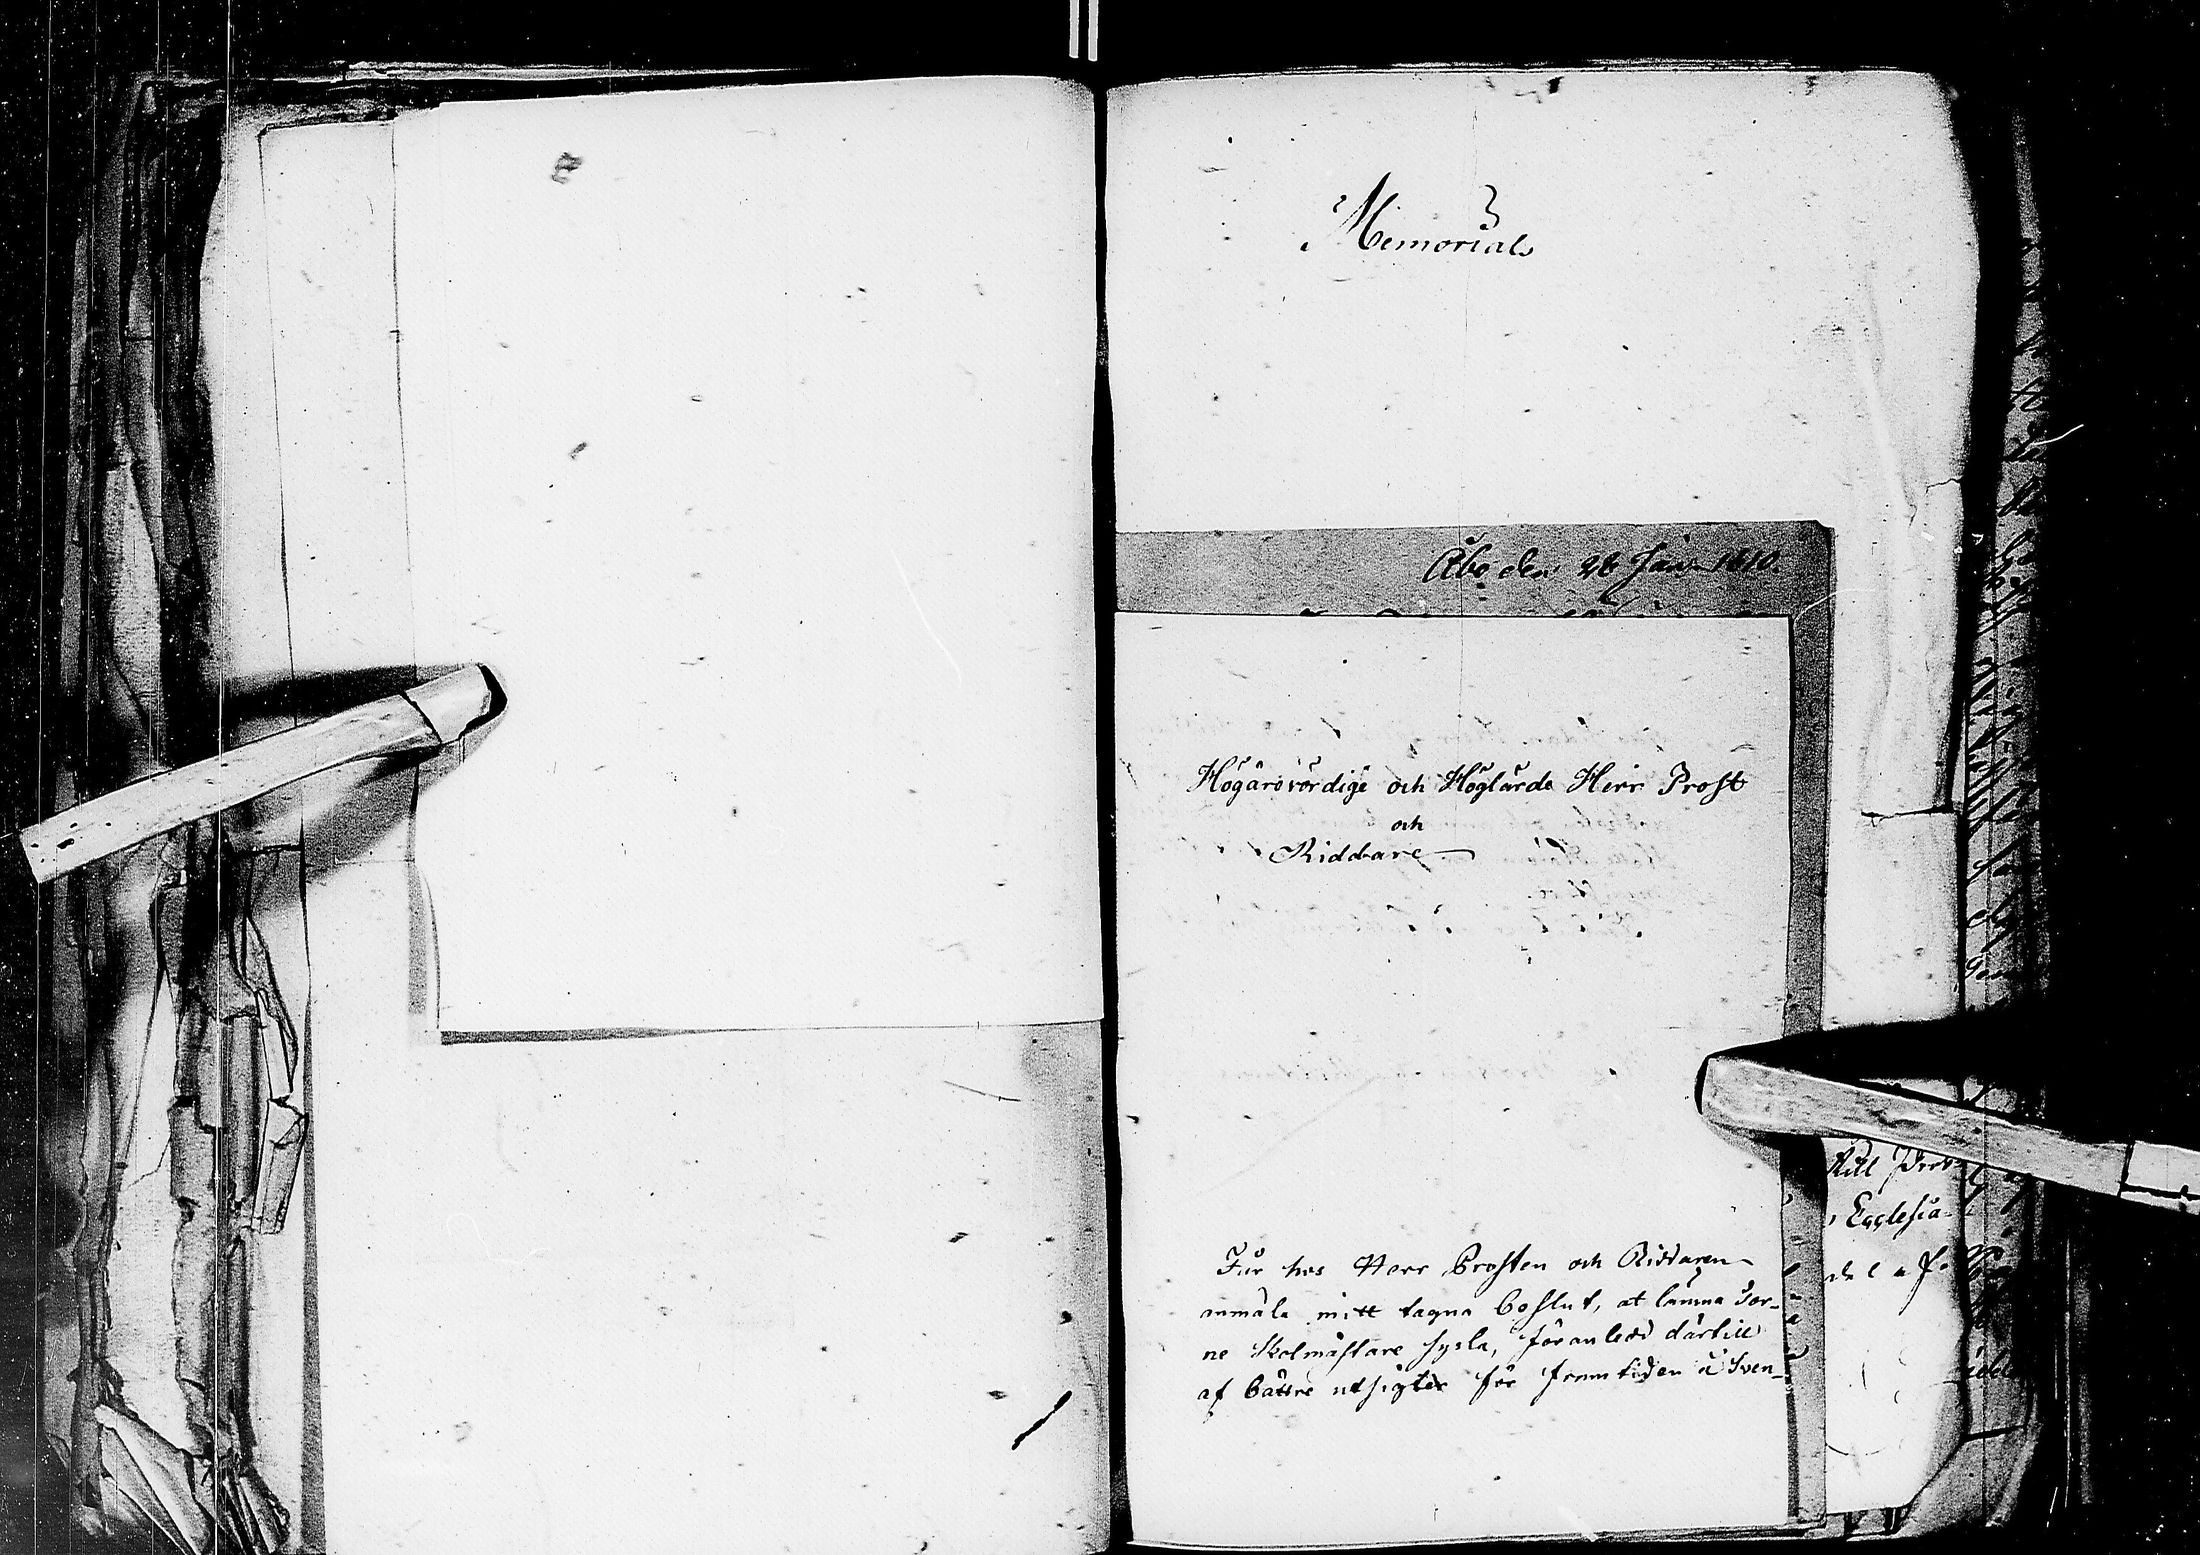 Memorial
Åbo den 28 Jan 1810.
Högärevördige och Höglärde Herr Prost
och
Riddare
Får hos Herr Prosten och Riddaren
anmäla mitt tagna beslut, at lämna Tor-
ne Skolmästare sysla, föranledd därtill
af bättre utsigter för framtiden i Sven-
Ecclesia-